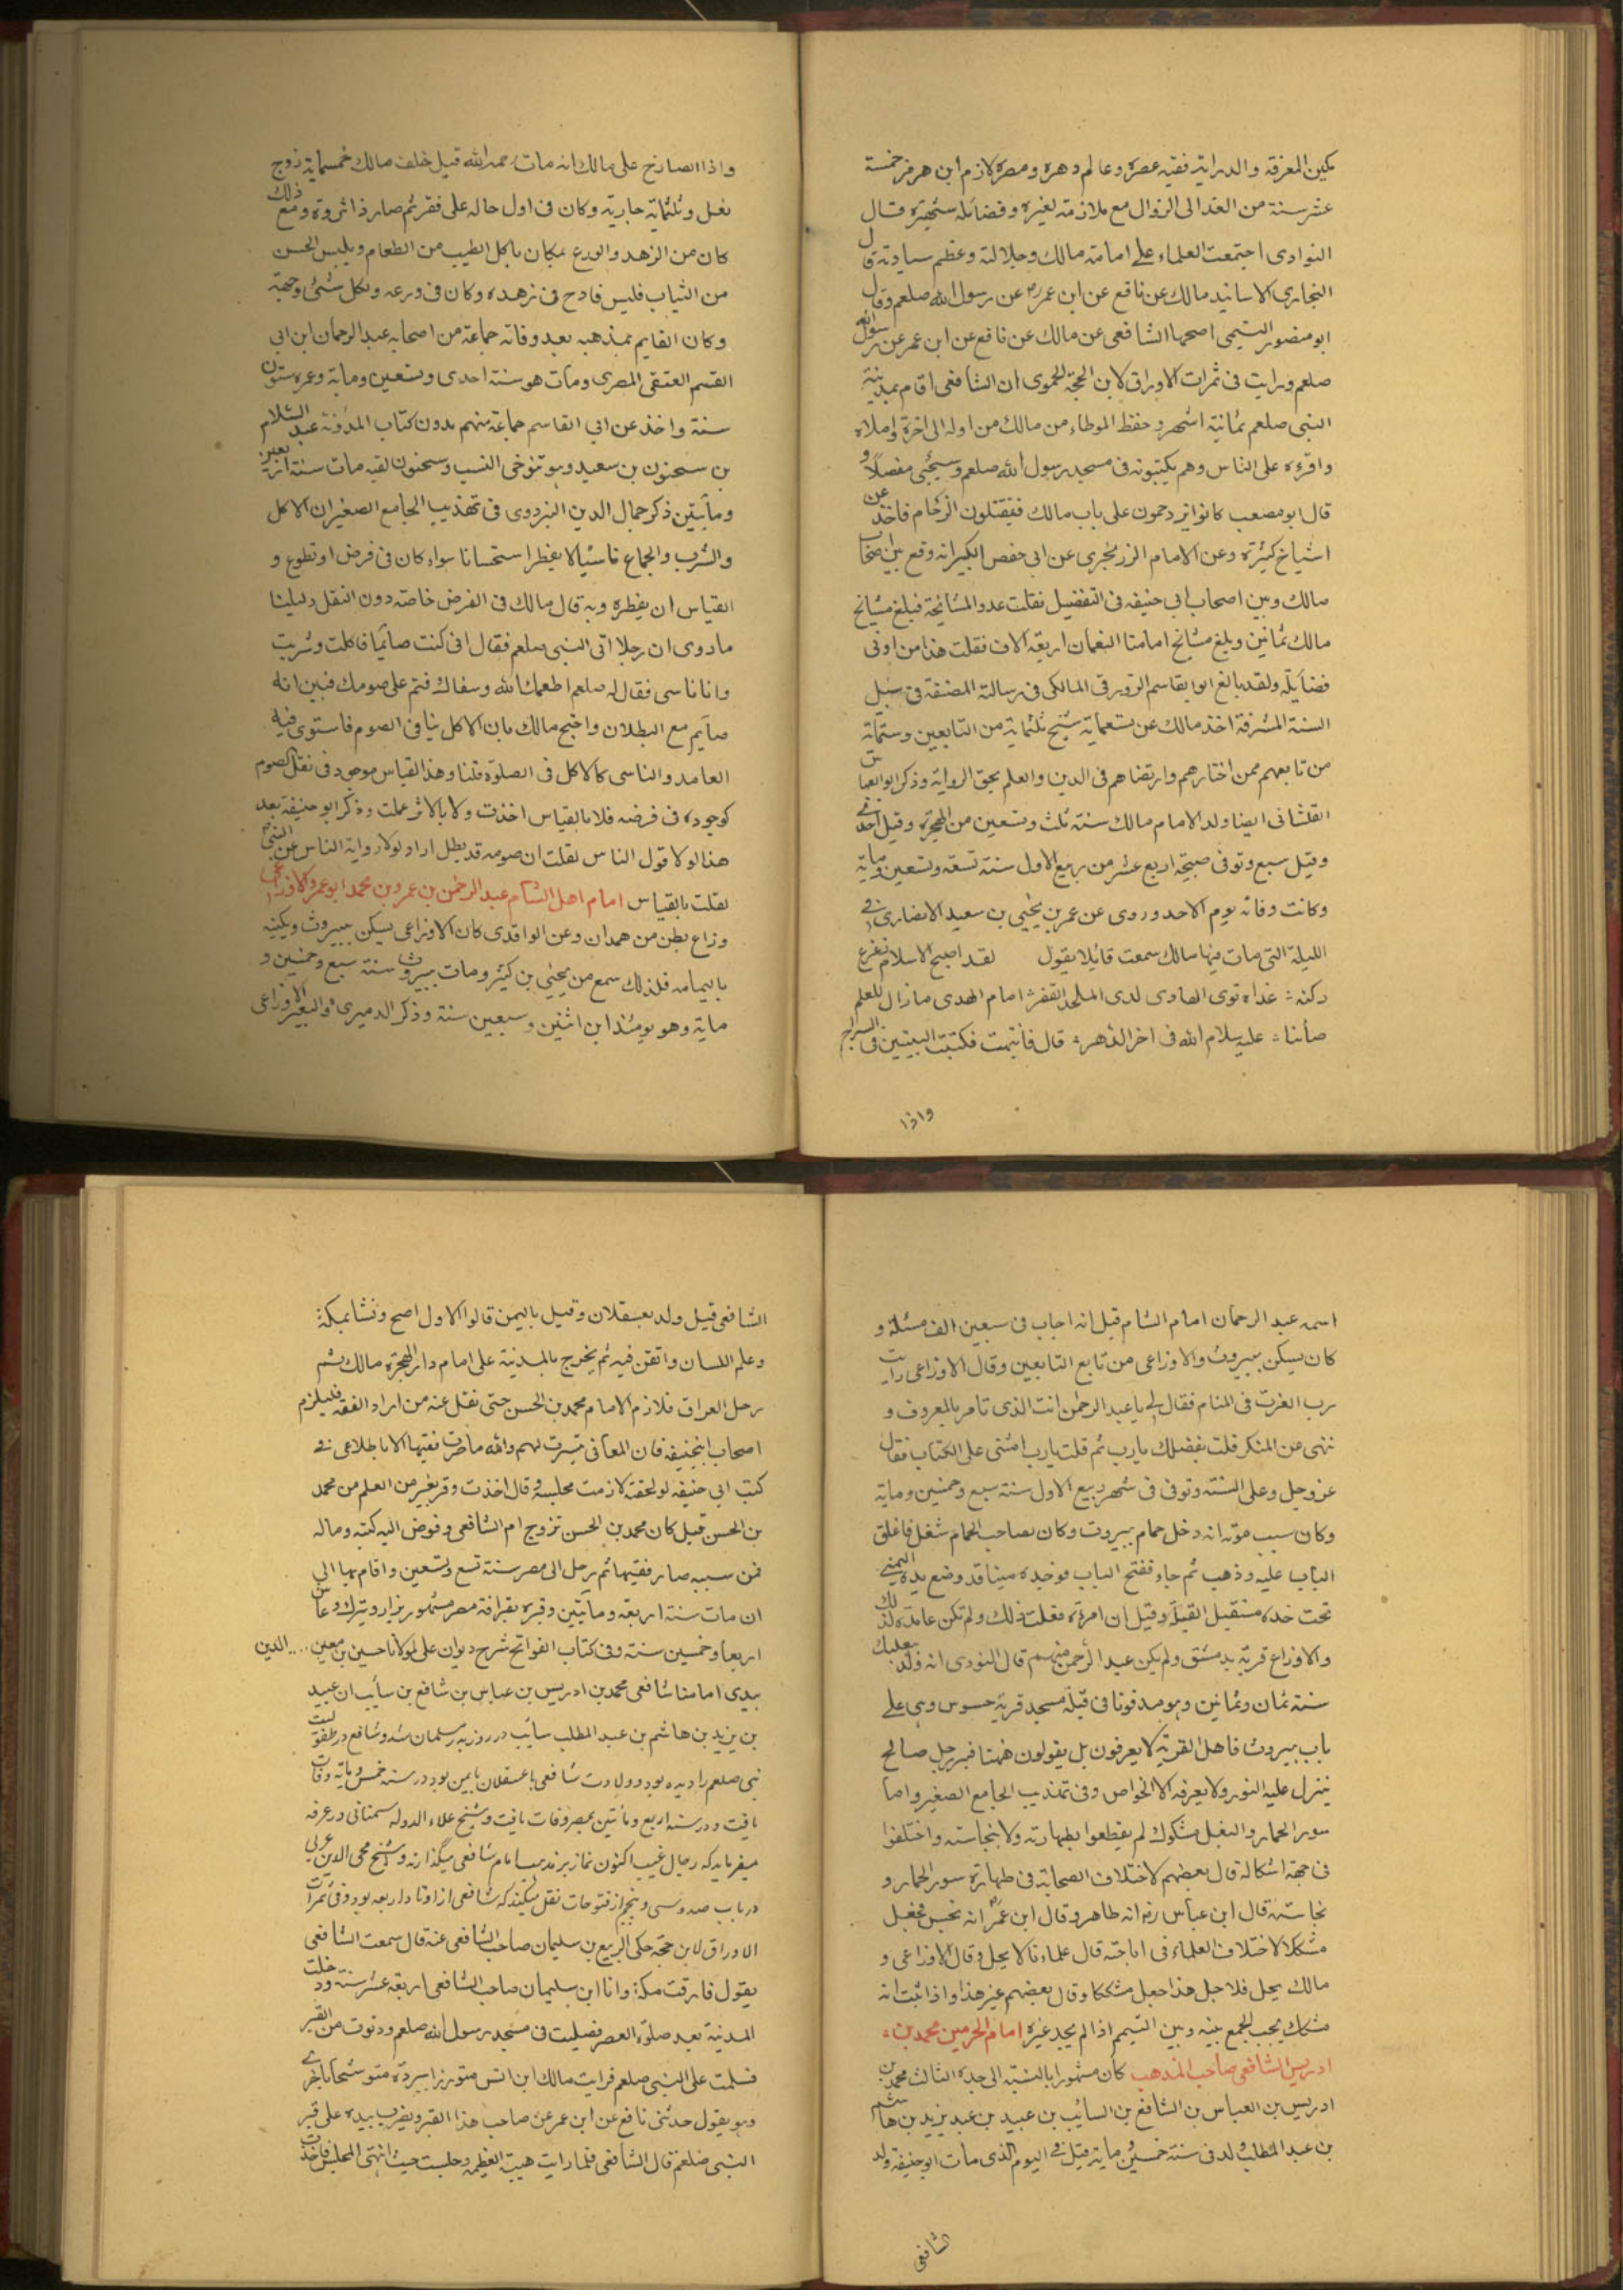 مكين المعرفة والدراية فقيه عصره وعالم دهره ومصره لازم ابن هرمز خمسة
عشر سنة من الغد الى الزوال مع ملازمته لغيره وفضائله شهيرة قال
النواوى اجتمعت العلماء على امامة مالك وجلالته وعظم سيادته قال
البخارى الاسانيد مالك عن نافع عن ابن عمر رض عن رسول الله صلعم وقال
ابو منصور التيمى اصحها الشافعى عن مالك عن نافع عن ابن عمر عن رسول الله
صلعم ورايت فى ثمرات الاوراق لابن الحجة الحموى ان الشافعى اقام بمدينة
النبى صلعم ثمانية اشهر وحفظ الموطاء من مالك من اوله الى اخره واملاه
واقرءه على الناس وهم يكتبونه فى مسجد رسول الله صلعم وسيجئى مفصلا و
قال ابو مصعب كانوا يزدحمون على باب مالك فيقتلون الزحام فاخذ عن
اشياخ كثيرة وعن الامام الزرنجرى عن ابى حفص الكبير انه وقع بين اصحاب
مالك وبين اصحاب ابى حنيفه فى التفضيل نقلت عدد المشائخة فبلغ مشايخ
مالك ثمانين وبلغ مشايخ امامنا النعمان اربعة الاف فقلت هذا من اوفى
فضايله ولقد بالغ ابو القاسم الزويرقى المالكى فى رسالته المصنفة فى سبل
السنة المشرفة اخذ مالك عن تسعمايه شيخ ثلثماية من التابعين وستماة
من تابعهم ممن اختارهم وارتضاهم فى الدين والعلم بحق الرواية وذكر ابو العباس
القلشانى ايضا ولد الامام مالك سنة ثلث وتسعين من الهجرة وقيل احد
وقيل سبع وتوفى صبيحة اربع عشر من ربيع الاول سنة تسعة وتسعين وماية
وكانت وفاته يوم الاحد وروى عن عمر بن يحيى بن سعيد الانصارى فى
الليلة التى مات فيها مالك سمعت قائيلا يقول لقد اصبح الاسلام زعزع
ركنه غداة ثوى الهادى لدى الملحد القفر امام الهدى مازال للعلم
صائنا عليه سلام الله فى اخر الدهر قال فانتبهت فكتبت البيتين فى السراج
واذا
واذا الصارخ على مالك انه مات رحمه الله قيل خلف مالك خمسماية زوج
نعل وثلثماية جارية وكان فى اول حاله على فقر ثم صار ذا ثروة ومع ذلك
كان من الزهد والورع بمكان ياكل الطيب من الطعام ويلبس الحسن
من الثياب فليس قادح فى زهده وكان فى ورعه ولكل شئ وجهة
وكان القايم بمذهبه بعد وفاته جماعة من اصحابه عبد الرحمان ابن ابى
القسم العتقى المصرى ومات هو سنة احدى وتسعين وماية وعمره ستون
سنة واخذ عن ابى القاسم جماعة منهم مدون كتاب المدونة عبد السلام
بن سحنون بن سعيد وهو تنوخى النسب وسحنون لقبه مات سنة اربعين
ومأتين ذكر جمال الدين البزدوى فى تهذيب الجامع الصغير ان الاكل
والشرب والجماع ناسيا لا يفطر استحسانا سواء كان فى فرض او تطوع و
القياس ان يفطره وبه قال مالك فى الفرض خاصة دون النفل دليلنا
ماروى ان رجلا اتى النبى صلعم فقال انى كنت صائما فاكلت وشربت
وانا ناسى فقال له صلعم اطعمك الله وسقاك فتم على صومك فبين انه
صايم مع البطلان واحتج مالك بان الاكل ينافى الصوم فاستوى فيه
العامد والناسى كالاكل فى الصلوة قلنا وهذا القياس موجود فى نفل الصوم
كوجوده فى فرضه فلا بالقياس اخذت ولا بالاثر عملت وذكر ابو حنيفة بعد
هذا لولا قول الناس لقلت ان صومه قد بطل اراد لولا رواية الناس عن النبى
لقلت بالقياس امام اهل الشام عبد الرحمن بن عمرو بن محمد ابو عمرو الاوزاعى
وزاع بطن من همدان وعن الواقدى كان الاوزاعى يسكن ببيروت ومكتبه
باليمامه فلذلك سمع من يحيى بن كثير ومات ببيروت سنة سبع وخمسين و
ماية وهو يومئذ ابن اثنين وسبعين سنة وذكر الدميرى الاوزاعى
اسمه عبد الرحمان امام الشام قيل انه اجاب فى سبعين الف مسئلة و
كان يسكن ببيروت والاوزاعى من تابع التابعين وقال الاوزاعى رايت
رب العزت فى المنام فقال لى يا عبد الرحمن انت الذى تامر بالمعروف و
تنهى عن المنكر قلت بفضلك يارب ثم قلت يارب امتنى على الكتاب فقال
عز وجل وعلى السنة وتوفى فى شهر ربيع الاول سنة سبع وخمسين وماية
وكان سبب موته انه دخل حمام ببيروت وكان لصاحب الحمام شغل فاغلق
الباب عليه وذهب ثم جاء ففتح الباب فوجده ميتا قد وضع يده اليمنى
تحت خده مستقبل القبلة وقيل ان امرته فعلت ذلك ولم تكن عامدة لذلك
والاوزاع قرية بدمشق ولم يكن عبد الرحمن منهم قال النووى انه ولد ببعلبك
سنة ثمان وثمانين وهو مدفونا فى قبلة مسجد قرية حسوس وهى على
باب بيروت فاهل القرية لا يعرفون بل يقولون ههنا قبر رجل صالح
ينزل عليه النور ولا يعرفه الا الخواص وفى تهذيب الجامع الصغير واما
سور الحمار والبغل مشكوك لم يقطعوا بطهارته ولا بنجاسته واختلفوا
فى جهة اشكاله قال بعضهم لاختلاف الصحابة فى طهارة سور الحمار و
نجاسته قال ابن عباس رض انه طاهر وقال ابن عمر انه نجس فجعل
مشكلا لاختلاف العلماء فى اباحته قال علماءنا لا يحل وقال الاوزاعى و
مالك يحل فلاجل هذا جعل مشككا وقال بعضهم غير هذا واذا ثبت انه
مشكك يجب الجمع بينه وبين التيمم اذا لم يجد غيره امام الحرمين محمد بن
ادريس الشافعى صاحب المذهب كان مشهورا بالنسبة الى جده الثالث محمد بن
ادريس بن العباس بن الشافع بن السائب بن عبيد بن عبد يزيد بن هاشم
بن عبد المطلب ولد فى سنة خمسين ماية قيل فى اليوم الذى مات ابو حنيفة ولد
الشافعى
الشافعى قيل ولد بعسقلان وقيل باليمن قالوا الاول اصح ونشا بمكة
وعلم اللسان واتقن فيه ثم يخرج بالمدينة على امام دار الهجرة مالك ثم
رحل العراق فلازم الامام محمد بن الحسن حتى نقل عنه من اراد الفقه فليلزم
اصحاب ابيحنيفة فان المعانى تيسرت لهم والله ماصرت فقيها الا باطلاعى فى
كتب ابى حنيفه لو لحقته لازمت مجلسه وقال اخذت وقر بعير من العلم من محمد
بن الحسن قيل كان محمد بن الحسن تزوج ام الشافعى وفوض اليه كتبه وماله
فمن سببه صار فقيها ثم رحل الى مصر سنة تسع وتسعين واقام بها الى
ان مات سنة اربعة ومأتين وقبره بقرافة مصر مشهور يزار ويترك وعاش
اربعا وخمسين سنة وفى كتاب الفواتح شرح ديوان على لمولانا حسين بن معين الدين
ميبدى امامنا شافعى محمد بن ادريس بن عباس بن شافع بن سائب ان عبيد
بن يزيد بن هاشم بن عبد المطلب سائب در روز بدر مسلمان شد وشافع در طفوليت
نبى صلعم را ديده بود وولادت شافعى با عسقلان يا يمن بود در سنه خمس وماية وفات
يافت ودر سنه اربع ومأتين بمصر وفات يافت وشيخ علاء الدوله سمنانى در عرفه
ميفرمايد كه رجال غيب اكنون نماز بر مذهب امام شافعى ميگذارند وشيخ محى الدين عربى
در باب صد وسى وپنجم از فتوحات نقل ميكند كه شافعى از اوتاد اربعه بود وفى ثمرات
الاوراق لابن حجة حكى الربيع بن سليمان صاحب الشافعى عنه قال سمعت الشافعى
يقول فارقت مكة وانا ابن سليمان صاحب الشافعى اربعة عشر سنة ودخلت
المدينة بعد صلوة العصر فصليت فى مسجد رسول الله صلعم ودنوت من القبر
فسلمت على النبى صلعم فرايت مالك ابن انس متوزرا ببردة متوشحا باخرى
وهو يقول حدثنى نافع عن ابن عمر عن صاحب هذا القبر ويضرب بيده على قبر
النبى صلعم قال الشافعى فلما رايت هيبته العظيمه وجلست حيث انتهى المجلس فاخذت